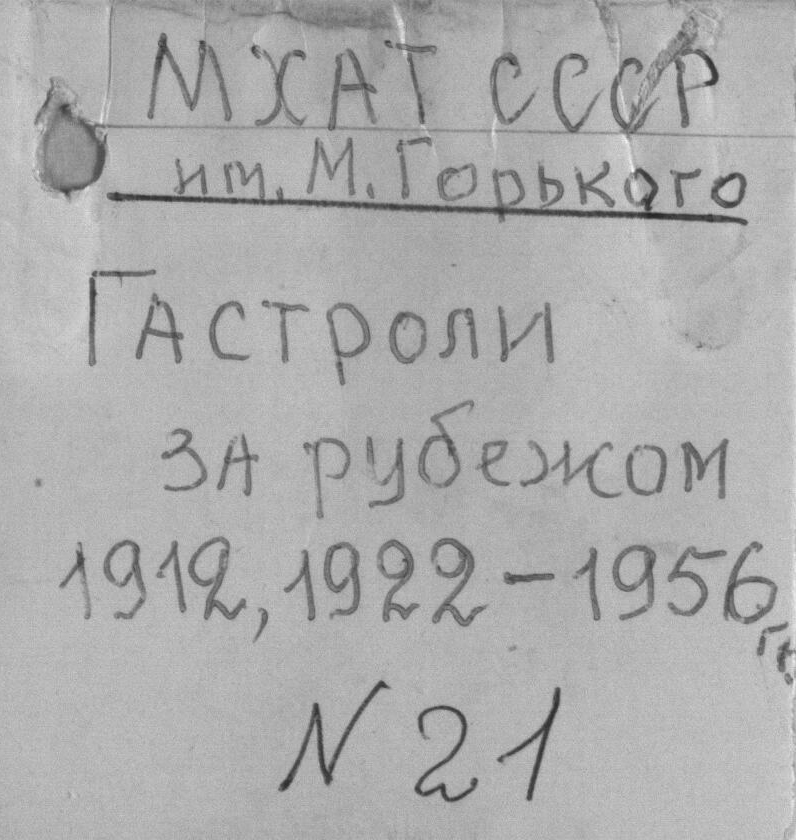 МХАТ СССР
им. М. Горького
Гастроли
за рубежом
1912, 1922 – 1956 гг.
N 21